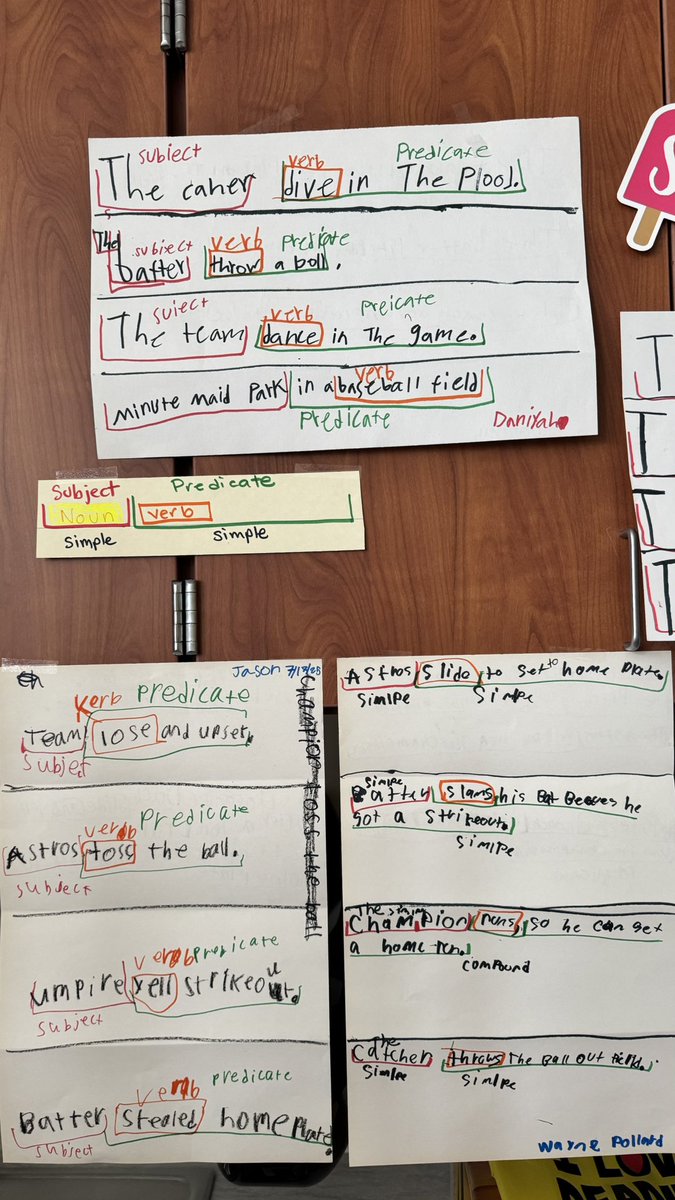 subject verb Predicate
The caher dive in The Plool.
subject verb Predicate
The batter throw a boll.
suject verb Preicate
The team dance in The game.
verb
minute maid Park in a baseball field
Predicate
Daniyah
Subject Predicate
Noun verb
simple simple
Jason 7/17/25
verb predicate
Team lose and upset.
subject
verb predicate
Astros toss the ball.
subject
verb predicate
umpire yell strikeout.
subject
verb predicate
Batter stealed home plate.
subject
Champion toss the ball
Astros slide to set to home plate.
Simlpe Simlpe
simlpe
Batter slams his Bat
got a strikeout.
Simlpe
The
Champion runs so he can get
a home run.
compound
The
Catcher throws The Ball out field.
Simlpe Simlpe
Wayne Pollard
S
T
T
T
T
LOVE